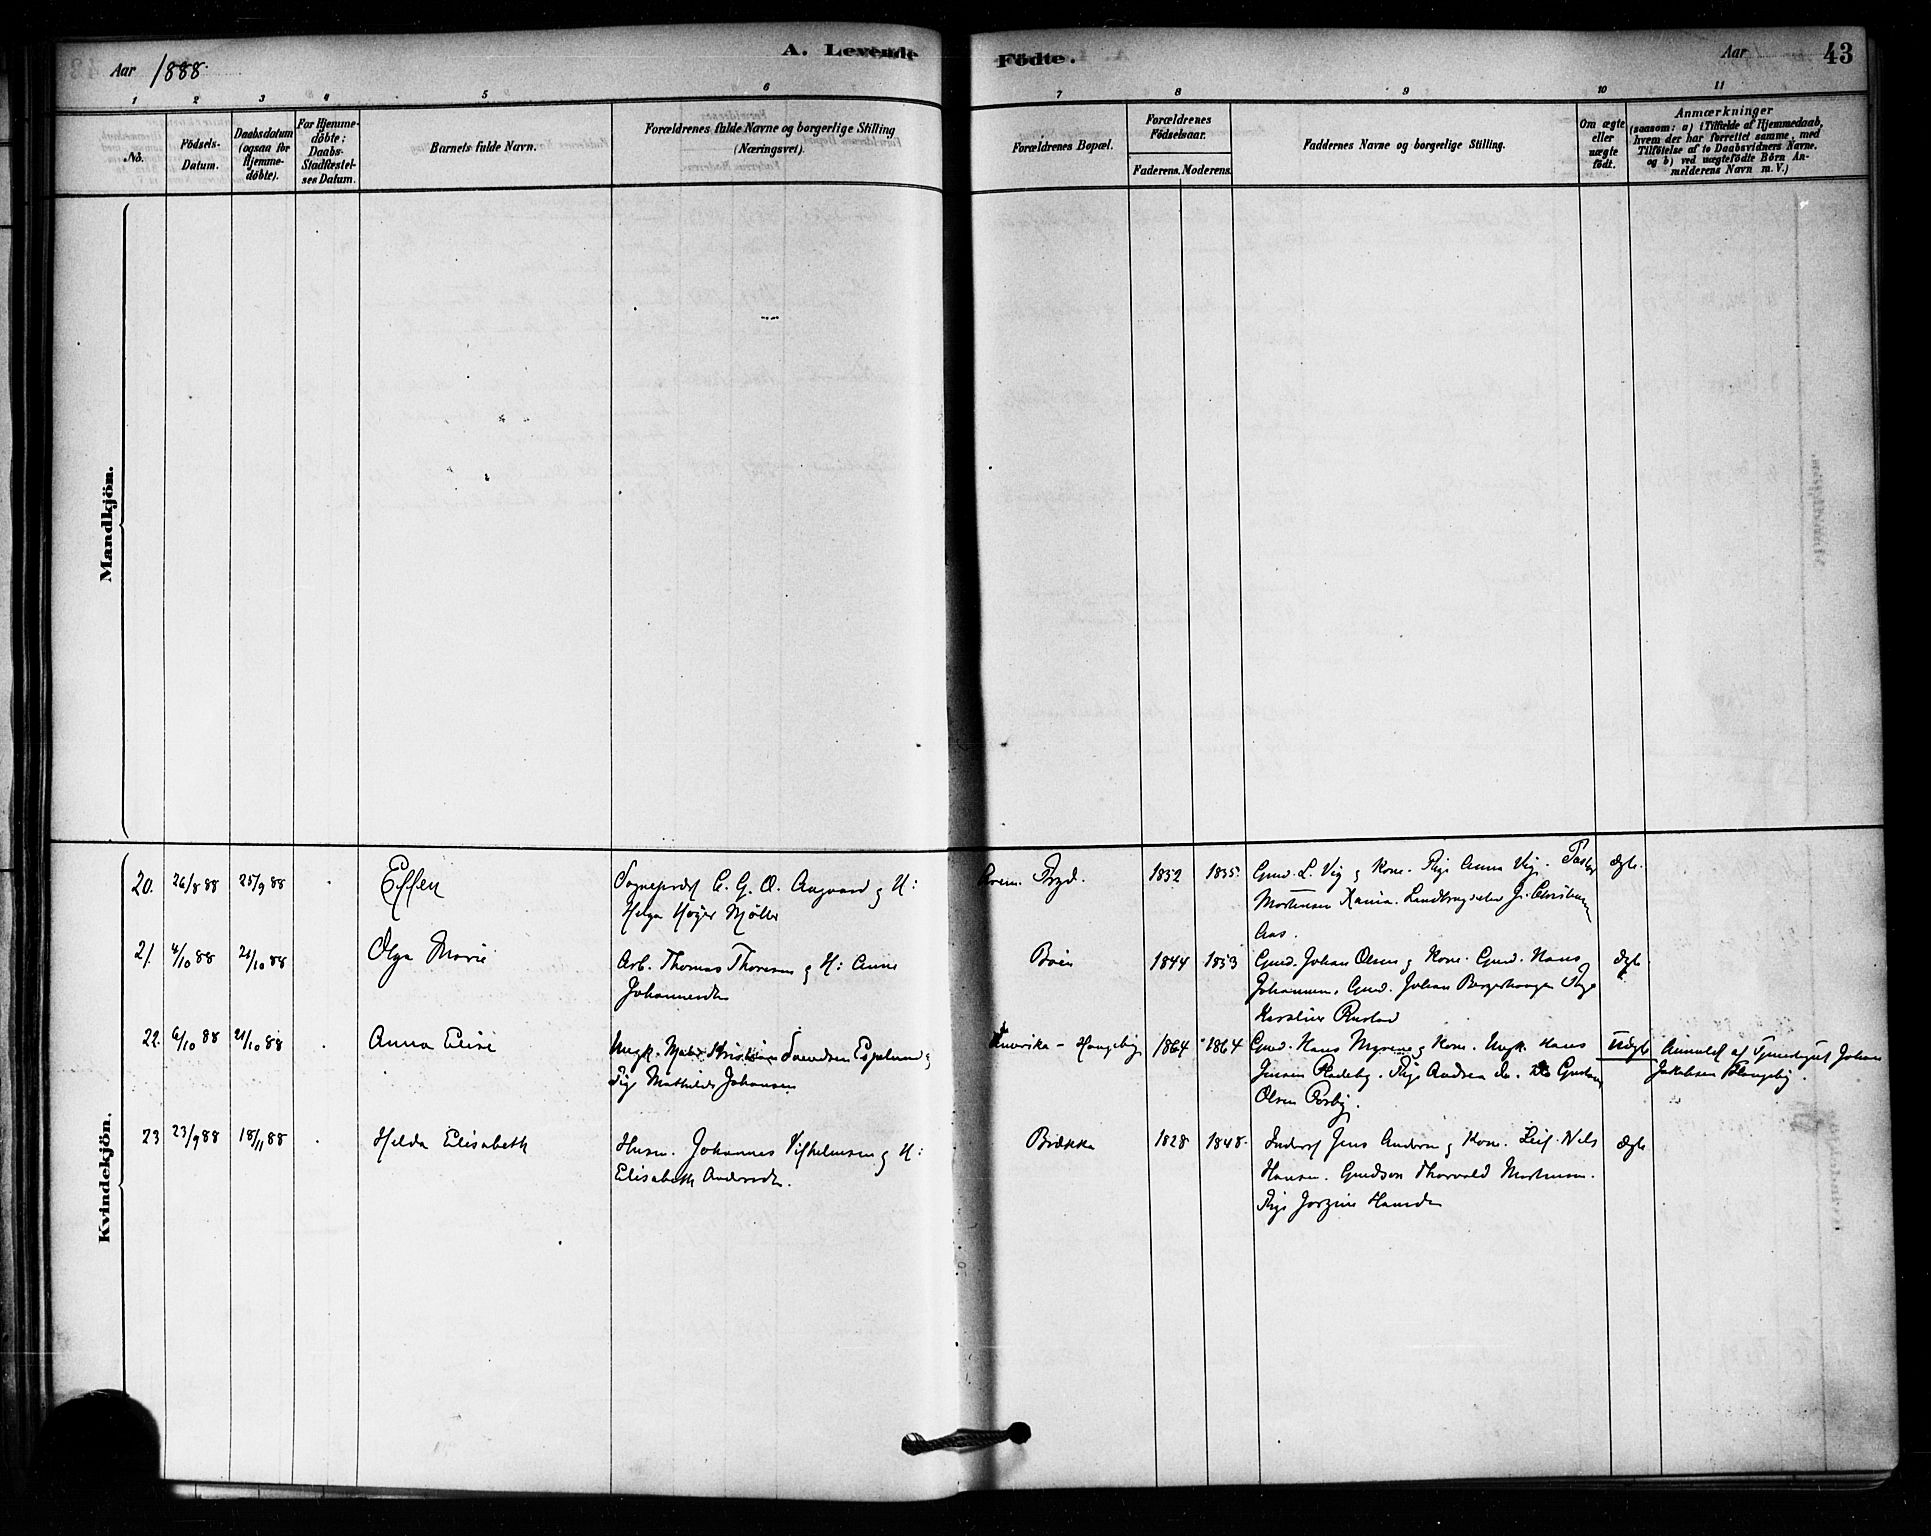 Aar 1888.
A. Levende
Födte.
Aar
43
1 2 3 4 5 6 7 8 9 10 11
No.
Födsels-
Datum.
Daabsdatum
(ogsaa for
Hjemme-
döbte).
For Hjemme-
döbte:
Daabs-
Stadfæstel-
ses Datum.
Barnets fulde Navn.
Forældrenes fulde Navne og borgerlige Stilling
(Næringsvei).
Forældrenes Bopæl.
Forældrenes
Födselsaar.
Faderens. Moderens.
Faddernes Navne og borgerlige Stilling.
Om ægte
eller
uægte
födt.
Anmærkninger
(saasom: a) i Tilfælde af Hjemmedaab,
hvem der har forrettet samme, med
Tilföielse af to Daabsvidners Navne,
og b) ved uægtefödte Börn An-
melderens Navn m. V.)
Mandkjön.
Kvindekjön.
20. 26/8 88 25/9 88 Ellen
Sognepræst C. G. O. Aagaard og H:
Helga Høyer Møller
1852 1855
Gmd. L. Vig og Kone. Pige Anna Vig.
Mortensen Xania.
Aas.
Ægte.
21. 4/10 88 21/10 88 Olga Marie
Arb. Thomas Thoresen og H: Anne
Johannesdtr
1844 1853
Gmd. Johan Olsen og Kone. Gmd. Hans
Johannesen. Gmd. Johan Pige
Rustad
Ægte
22. 6/10 88 21/10 88 Anna Elise
Ungk. Kristian Svendsen og
Pig. Mathilde Johansen
Amerika - Haugeby
1864 1864
Gmd. Hans Myrene og Kone. Ungk. Hans
Jensen Pige Andrea do.
Olsen
Uægte
Anmeldt af Johan
Jakobsen Haugeby.
23 23/9 88 18/11 88 Helda Elisabeth
Husm. Johannes Vilhelmsen og H:
Elisabeth Andersdtr.
Brække
1828 1848
Jens Andersen og Kone. Nils
Hansen. Gmdsøn Thorvald Mortensen.
Pige Hansdtr
Ægte